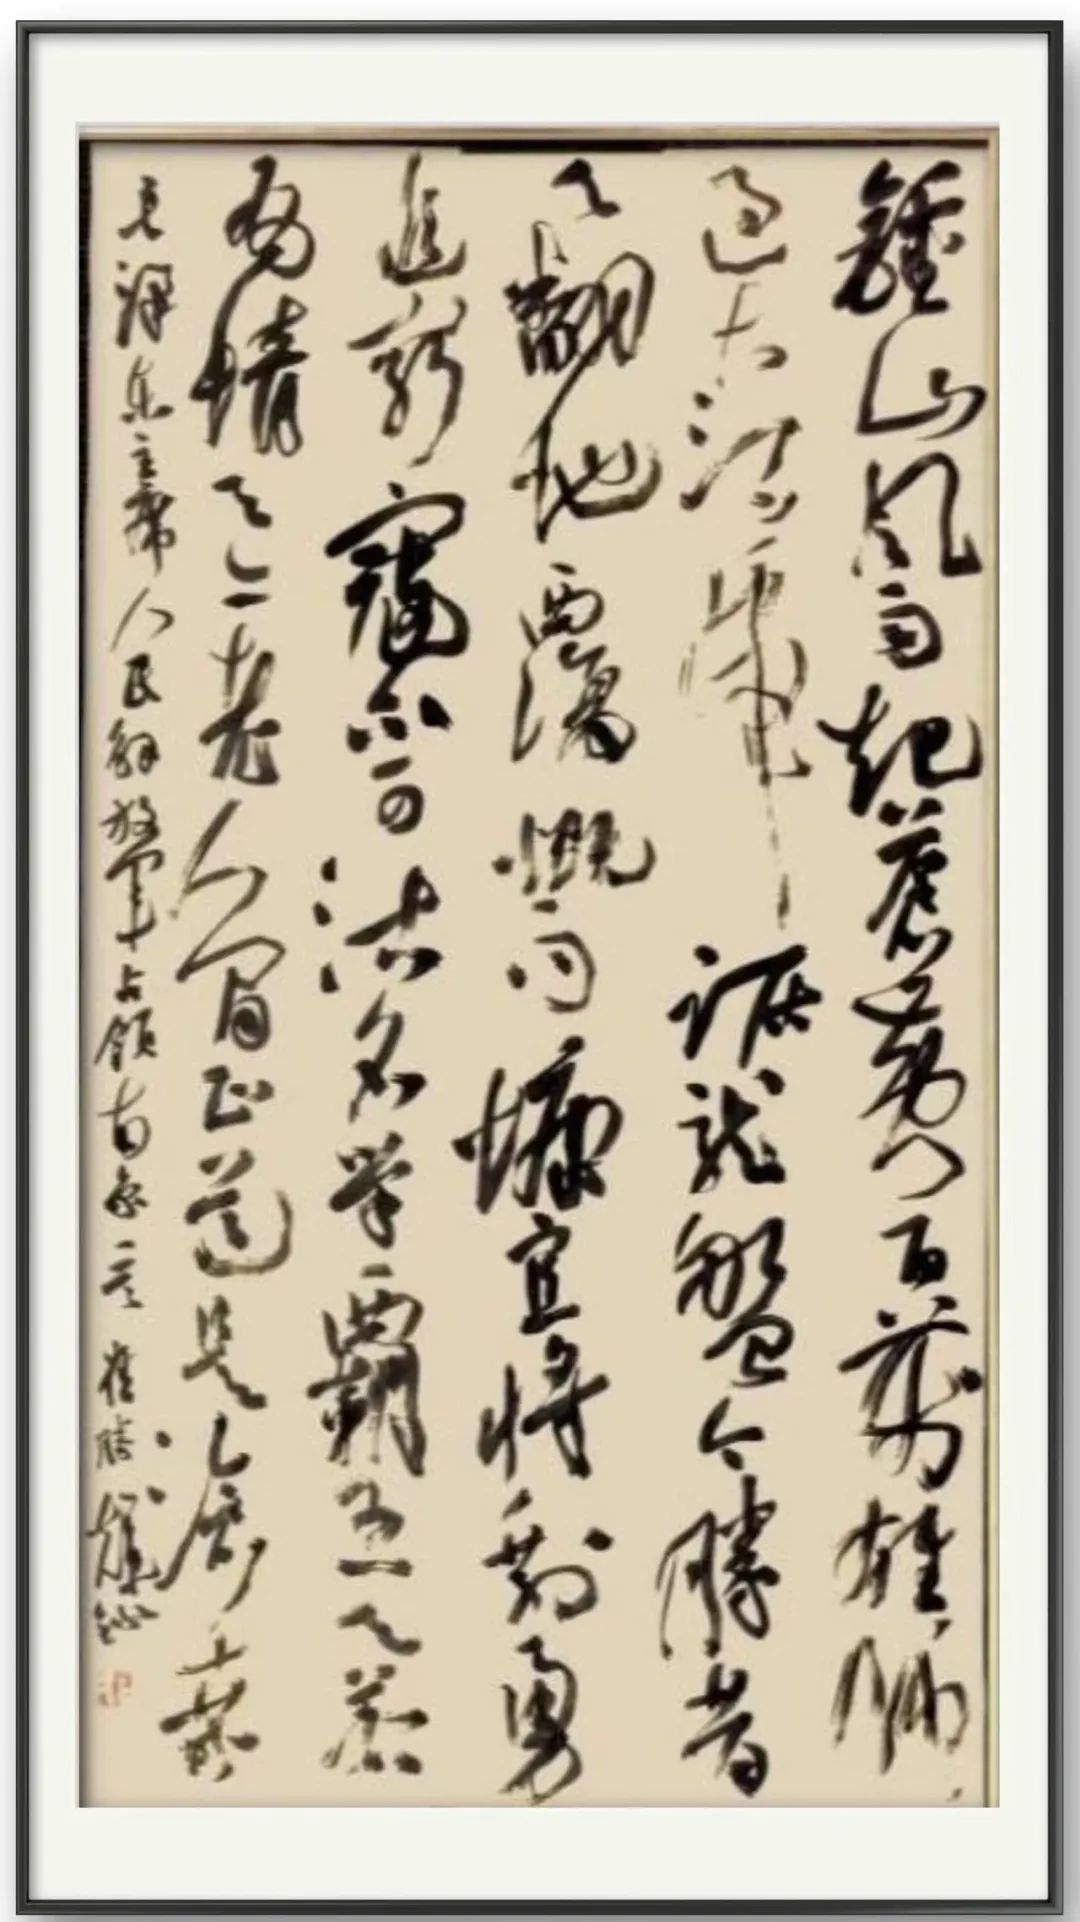 鍾山風雨起蒼黃百萬雄師
過大江虎踞龍盤今勝昔
天翻地覆慨而慷宜將剩勇
追窮寇不可沽名學霸王天若
有情天亦老人間正道是滄桑
毛澤東主席人民解放軍占領南京一首崔勝